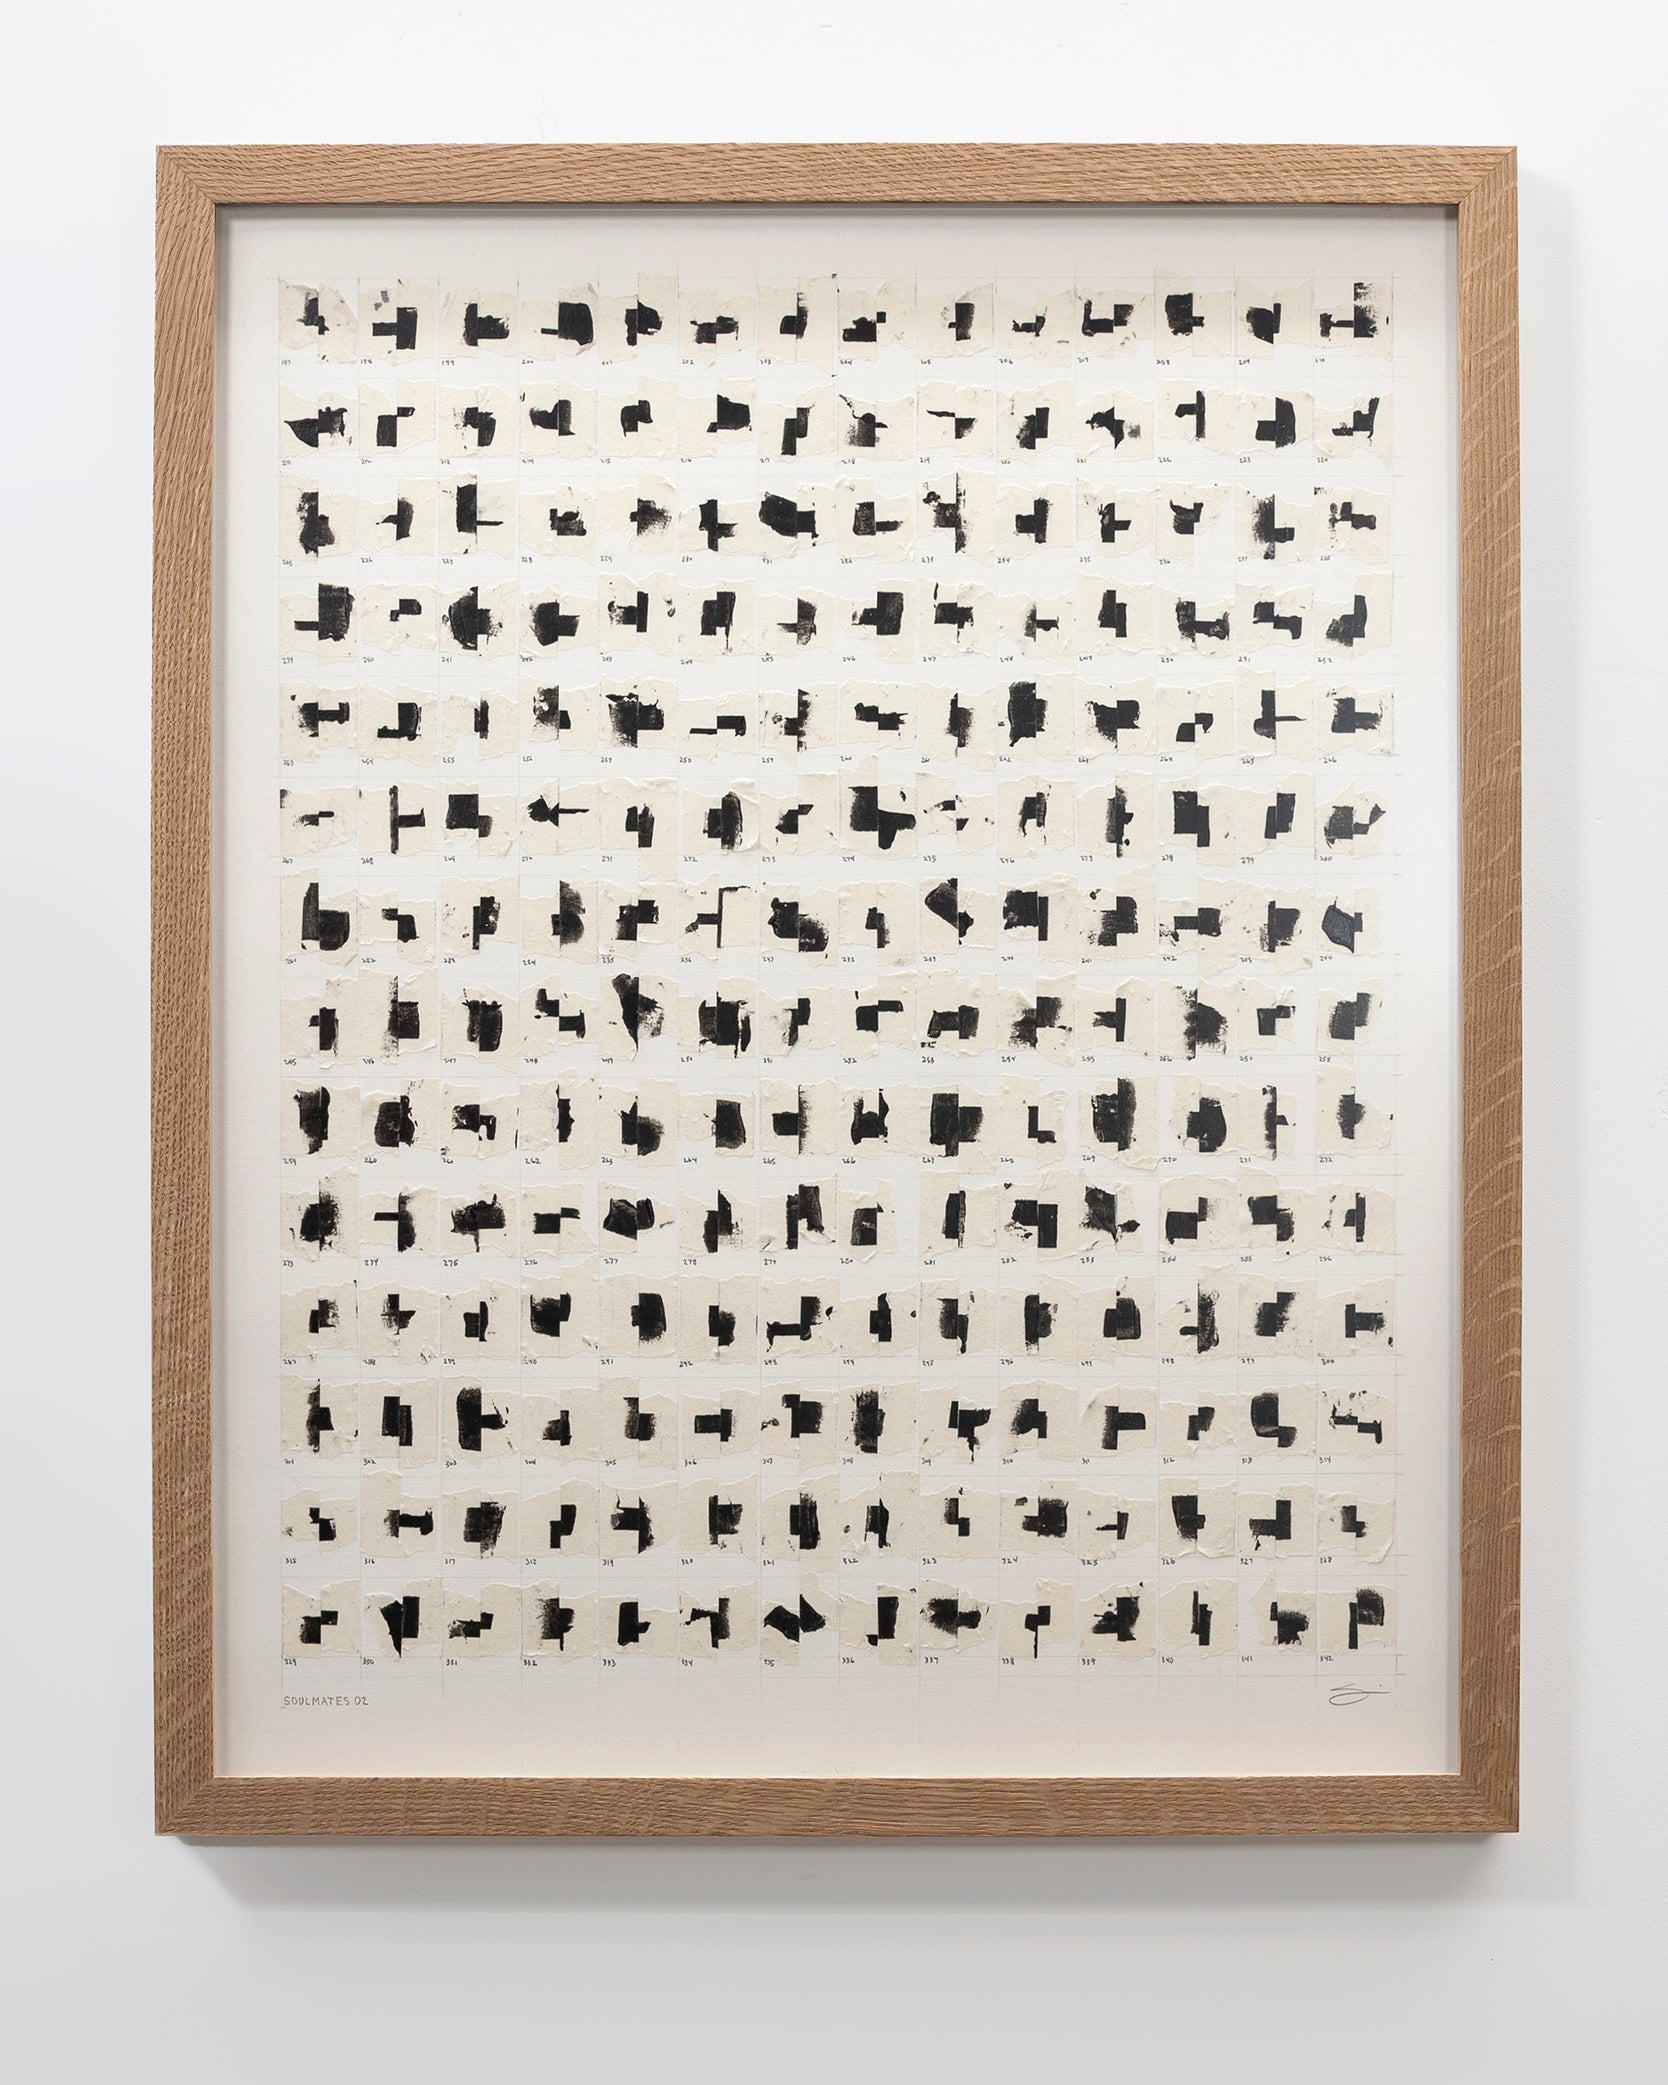 197 198 199 200 201 202 203 204 205 206 207 208 209 210
211 212 213 214 215 216 217 218 219 220 221 222 223 224
225 226 227 228 229 230 231 232 233 234 235 236 237 238
239 240 241 242 243 244 245 246 247 248 249 250 251 252
253 254 255 256 257 258 259 260 261 262 263 264 265 266
267 268 269 270 271 272 273 274 275 276 277 278 279 280
281 282 283 284 235 236 237 238 239 240 241 242 243 244
245 246 247 248 249 250 251 252 253 254 255 256 257 258
259 260 261 262 263 264 265 266 267 268 269 270 271 272
273 274 275 276 277 278 279 280 281 282 283 284 285 286
287 288 289 290 291 292 293 294 295 296 297 298 299 300
301 302 303 304 305 306 307 308 309 310 311 312 313 314
315 316 317 318 319 320 321 322 323 324 325 326 327 328
329 330 331 332 333 334 335 336 337 338 339 340 341 342
SOULMATES 02